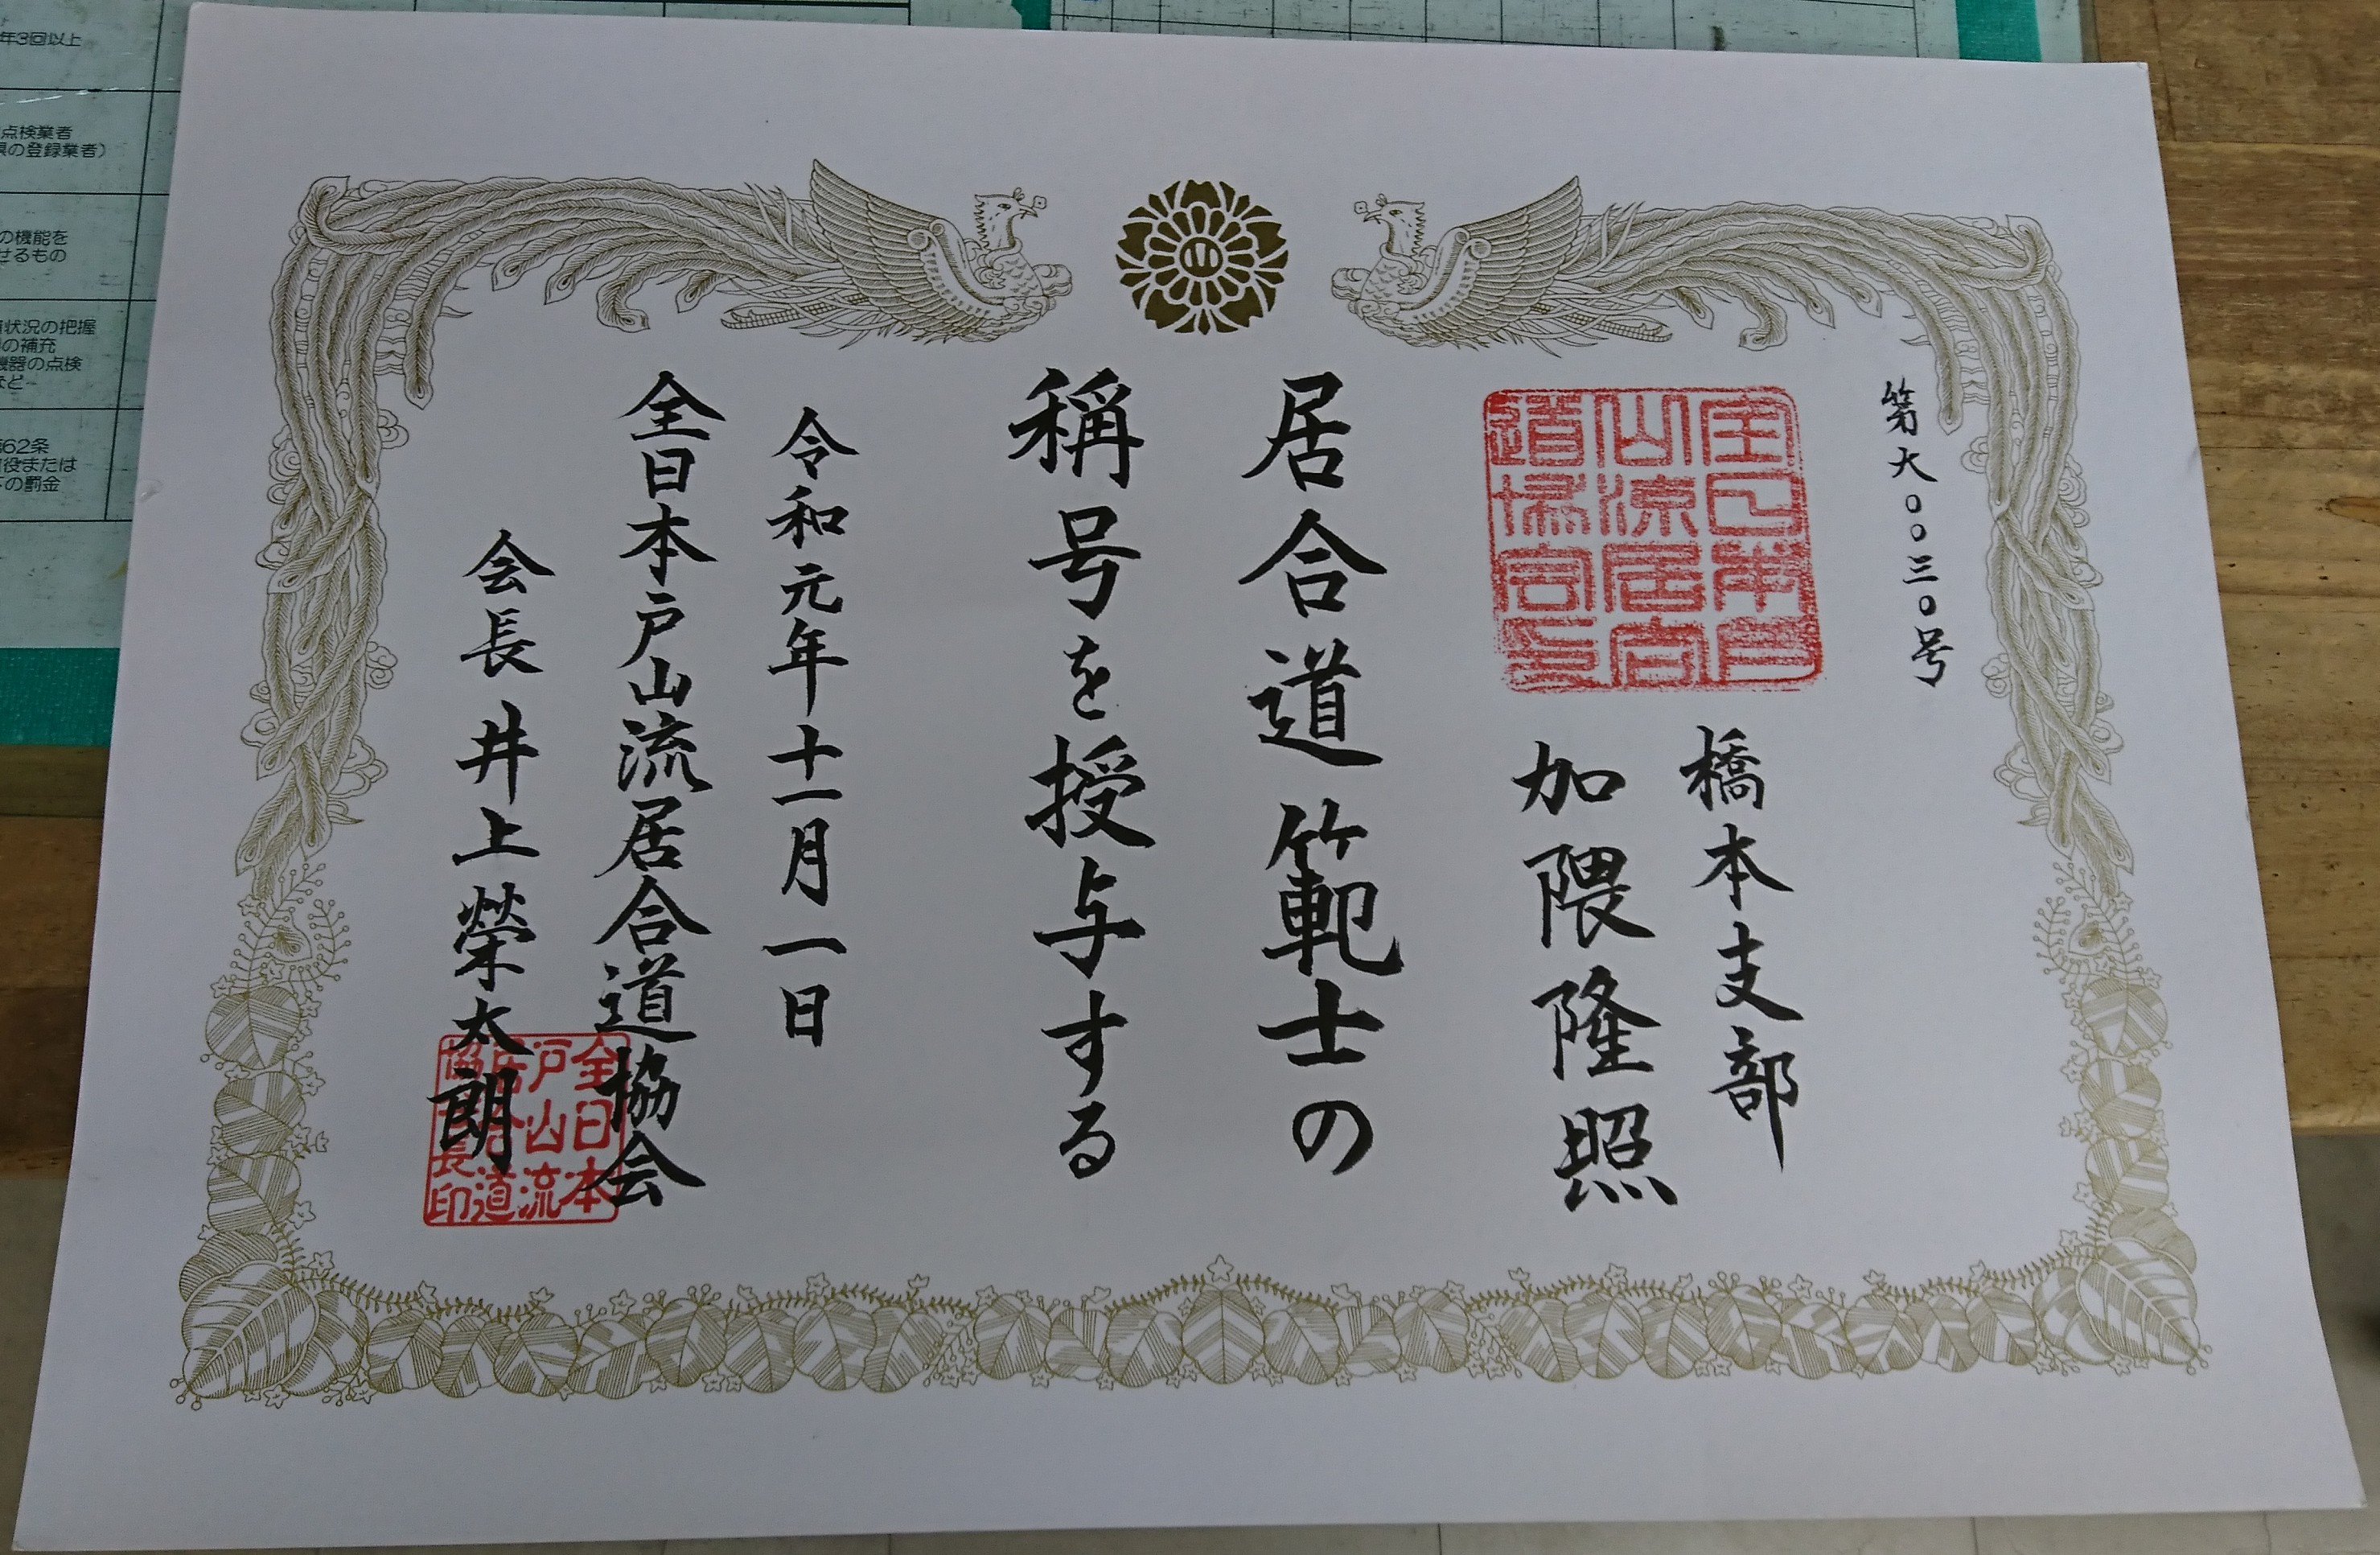 第大〇〇三〇号
橋本支部
加隈隆照
居合道範士の
稱号を授与する
令和元年十一月一日
全日本戸山流居合道協会
会長 井上榮太朗
全日本戸
山流居合
道協会印
全日本
戸山流
居合道
協会長印
年3回以上
点検業者
県の登録業者)
の機能を
せるもの
状況の把握
の補充
機器の点検
など
62条
役または
下の罰金